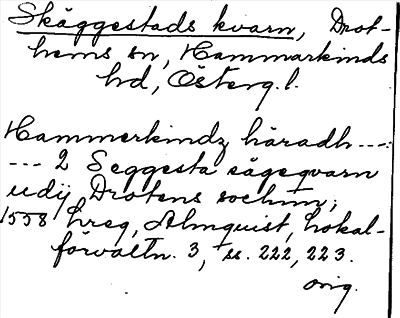 Skäggestads kvarn, Drot-
hems sn, Hammarkinds
hd, Österg. l.
Hammerkindz häradh ----
--- 2 Seggesta sägeqvarn
udij Drotens sochnn;
1558 hreg, Almquist, Lokal-
förvaltn. 3, ss. 222, 223.
orig.